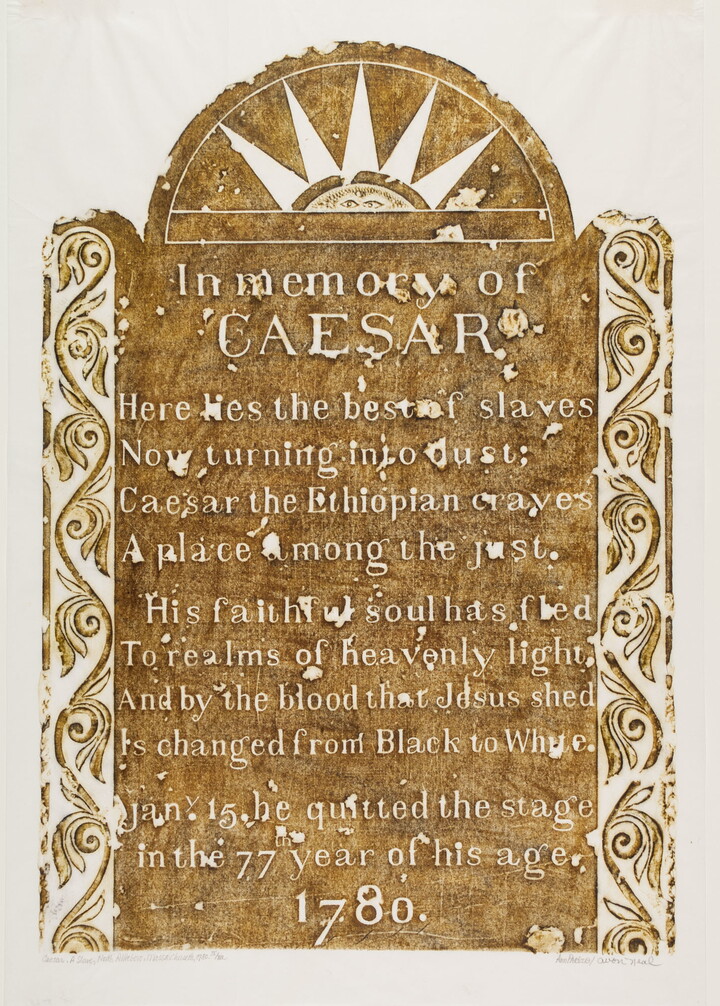 In memory of
CAESAR
Here lies the best of slaves
Now turning into dust;
Caesar the Ethiopian craves
A place among the just.
His faithful soul has fled
To realms of heavenly light,
And by the blood that Jesus shed
Is changed from Black to White.
Jan.y 15, he quitted the stage
in the 77th year of his age.
1780.
Caesar, A Slave, North Attleboro, Massachusetts, 1780
Ann Parker / Avon Neal